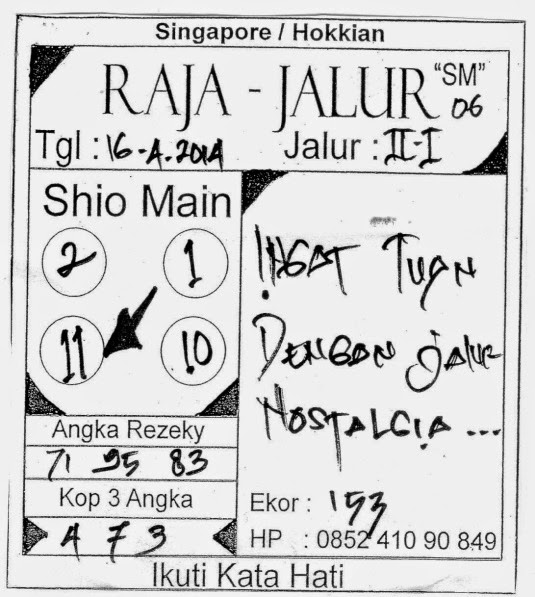 Singapore / Hokkian
RAJA - JALUR "SM"
06
Tgl : 16-4-2014 Jalur : II-I
Shio Main
2 1
11 10
INGAT TUAN
DENGAN JALUR
NOSTALGIA ...
Angka Rezeky
71 95 83
Kop 3 Angka
4 7 3
Ekor : 153
HP : 0852 410 90 849
Ikuti Kata Hati